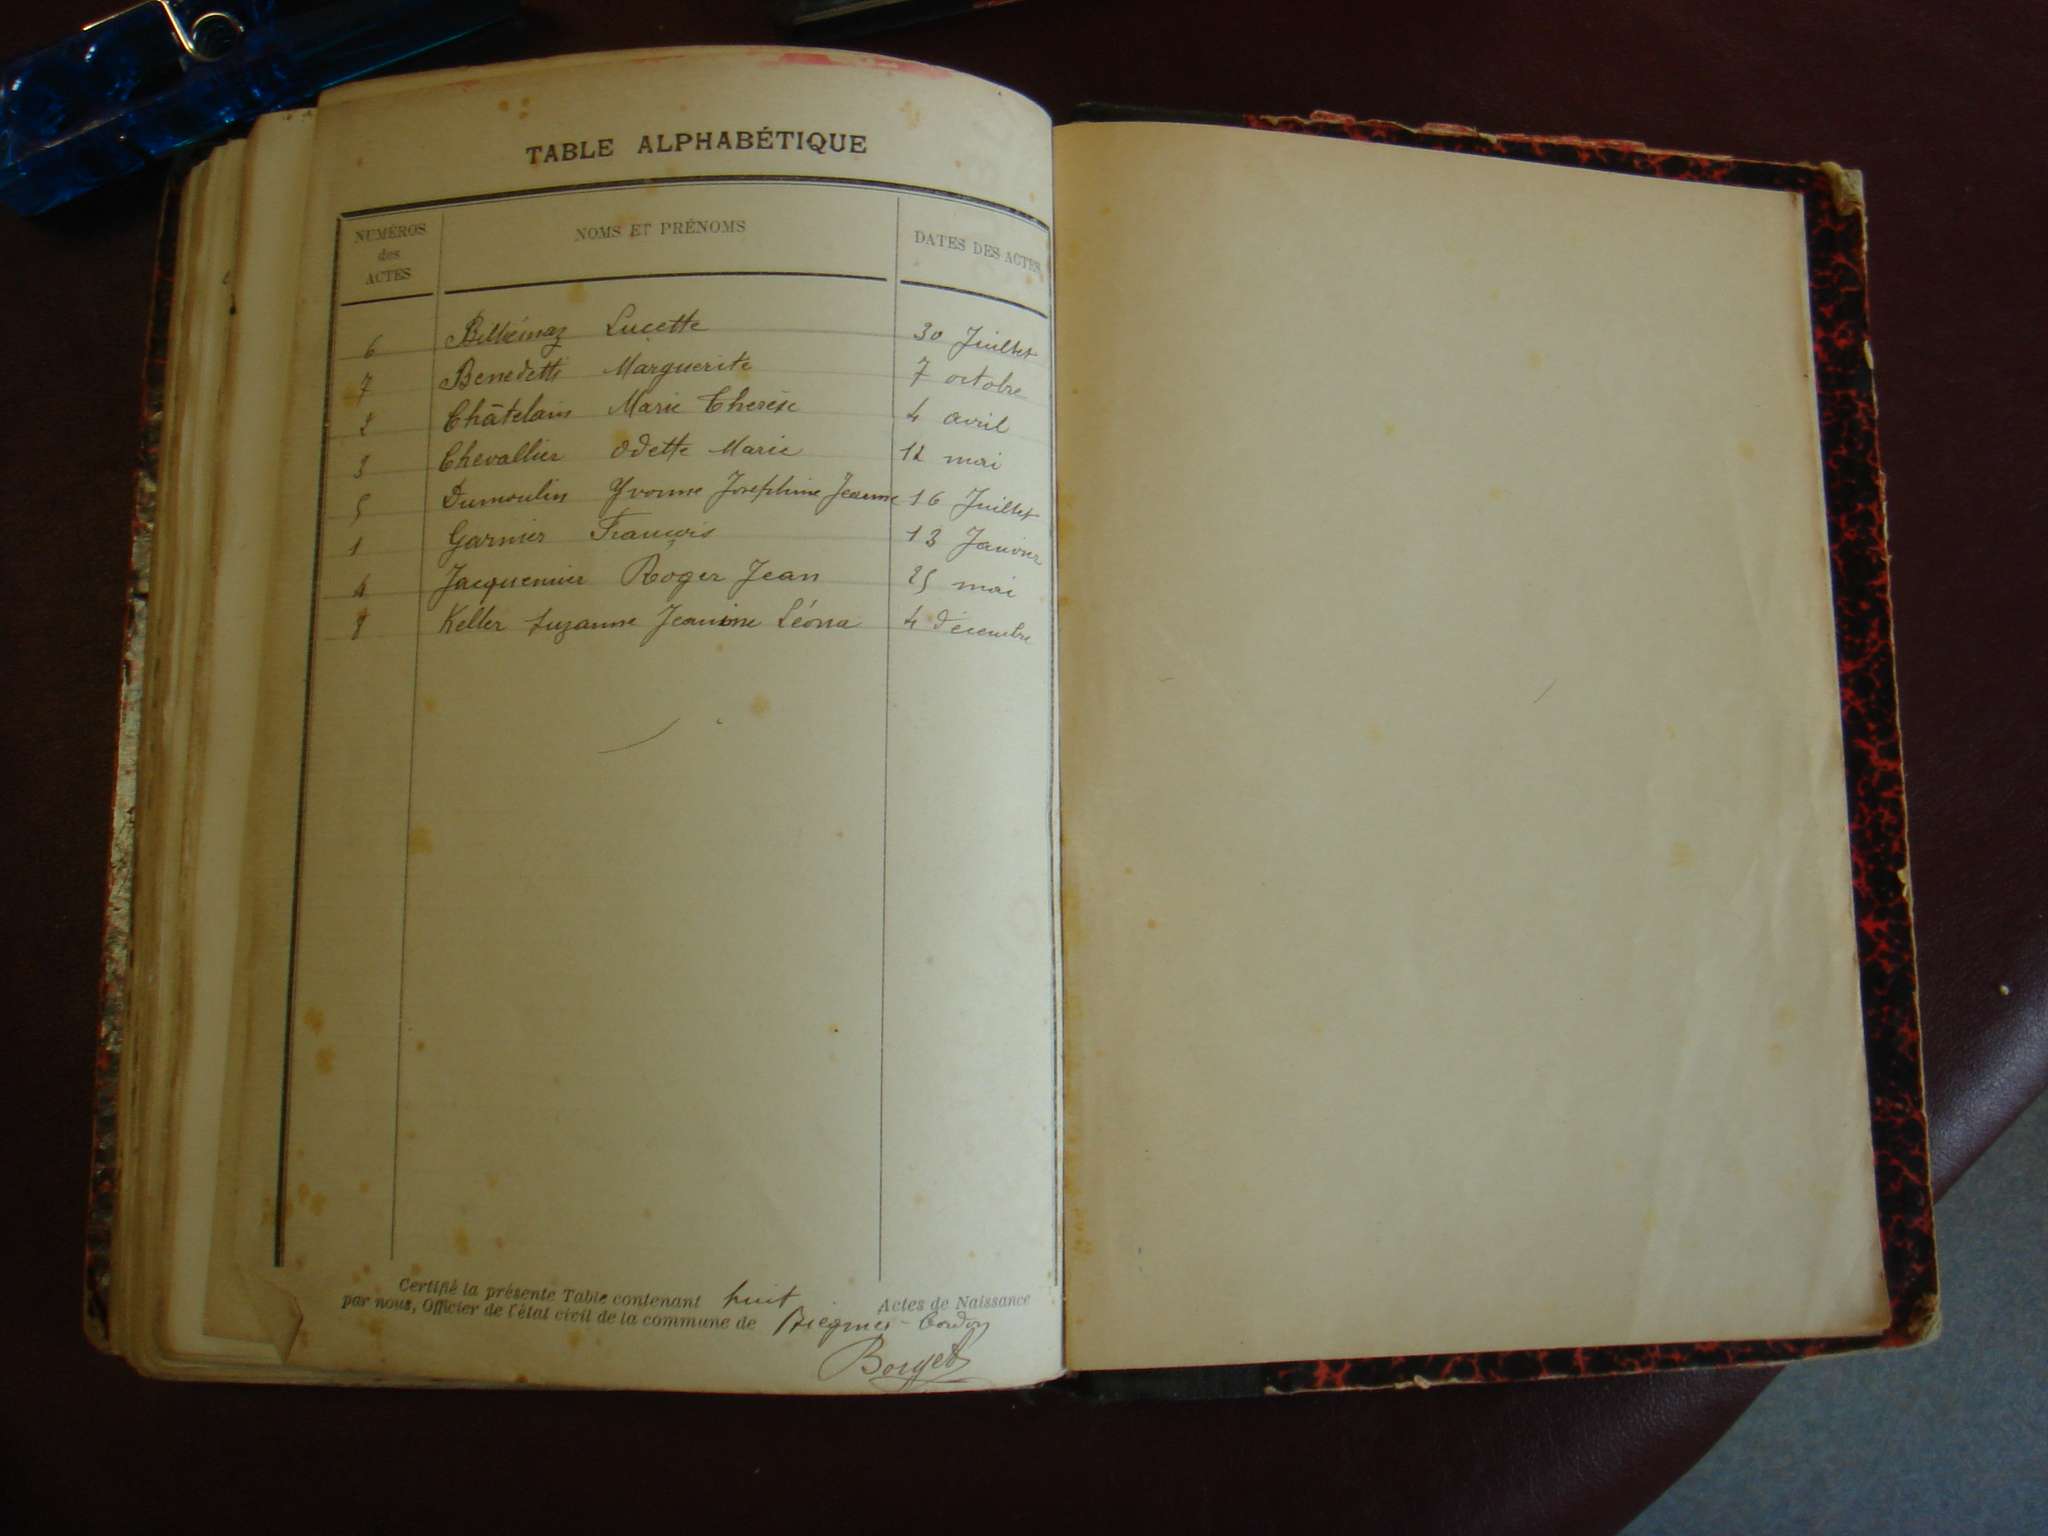 TABLE ALPHABÉTIQUE
NUMÉROS des ACTES NOMS ET PRÉNOMS DATES DES ACTES
6 Lucette 30 Juillet
7 Benedetti Marguerite 7 octobre
2 Châtelain Marie Therèse 4 avril
3 Chevallier Odette Marie 12 mai
5 Dumoulin Yvonne Joséphine Jeanne 16 Juillet
1 Garnier François 13 Janvier
4 Jacquemier Roger Jean 25 mai
8 Keller Suzanne Jeanine Léona 4 décembre
Certifié la présente Table contenant huit Actes de Naissance
par nous, Officier de l'état civil de la commune de Brégnier-Cordon